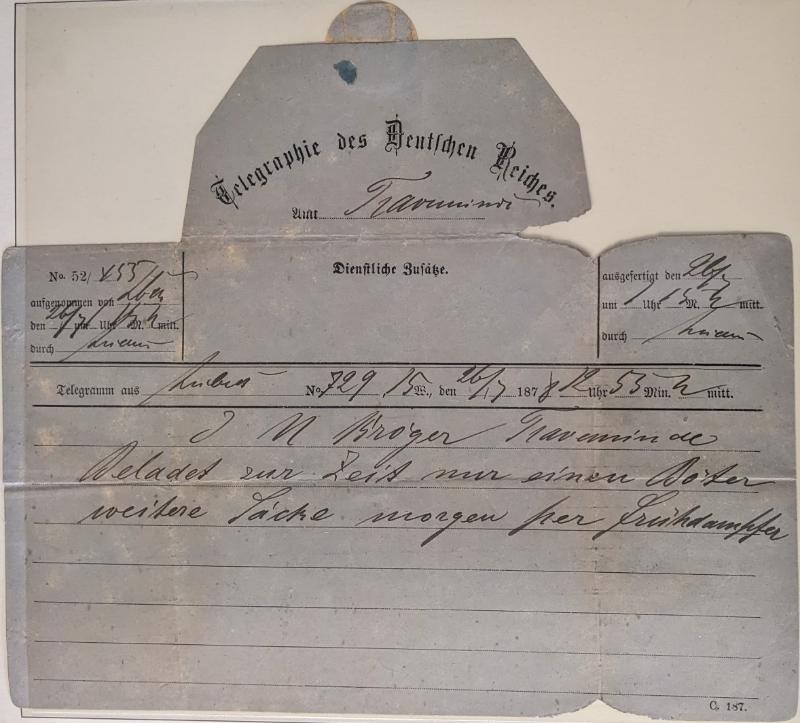 Telegraphie des Deutschen Reiches.
Amt Travemünde
Dienstliche Zusätze.
No. 52/
aufgenommen von
den 26/7 um Uhr M. mitt.
durch
ausgefertigt den 26/7
um 1 Uhr M. mitt.
durch
Telegramm aus Lübeck No. 729 15 W., den 26/7 1878 12 Uhr 55 Min. mitt.
J N Kröger Travemünde
Beladet zur Zeit nur einen Böter
weitere Säcke morgen per Frühdampfer
C. 187.